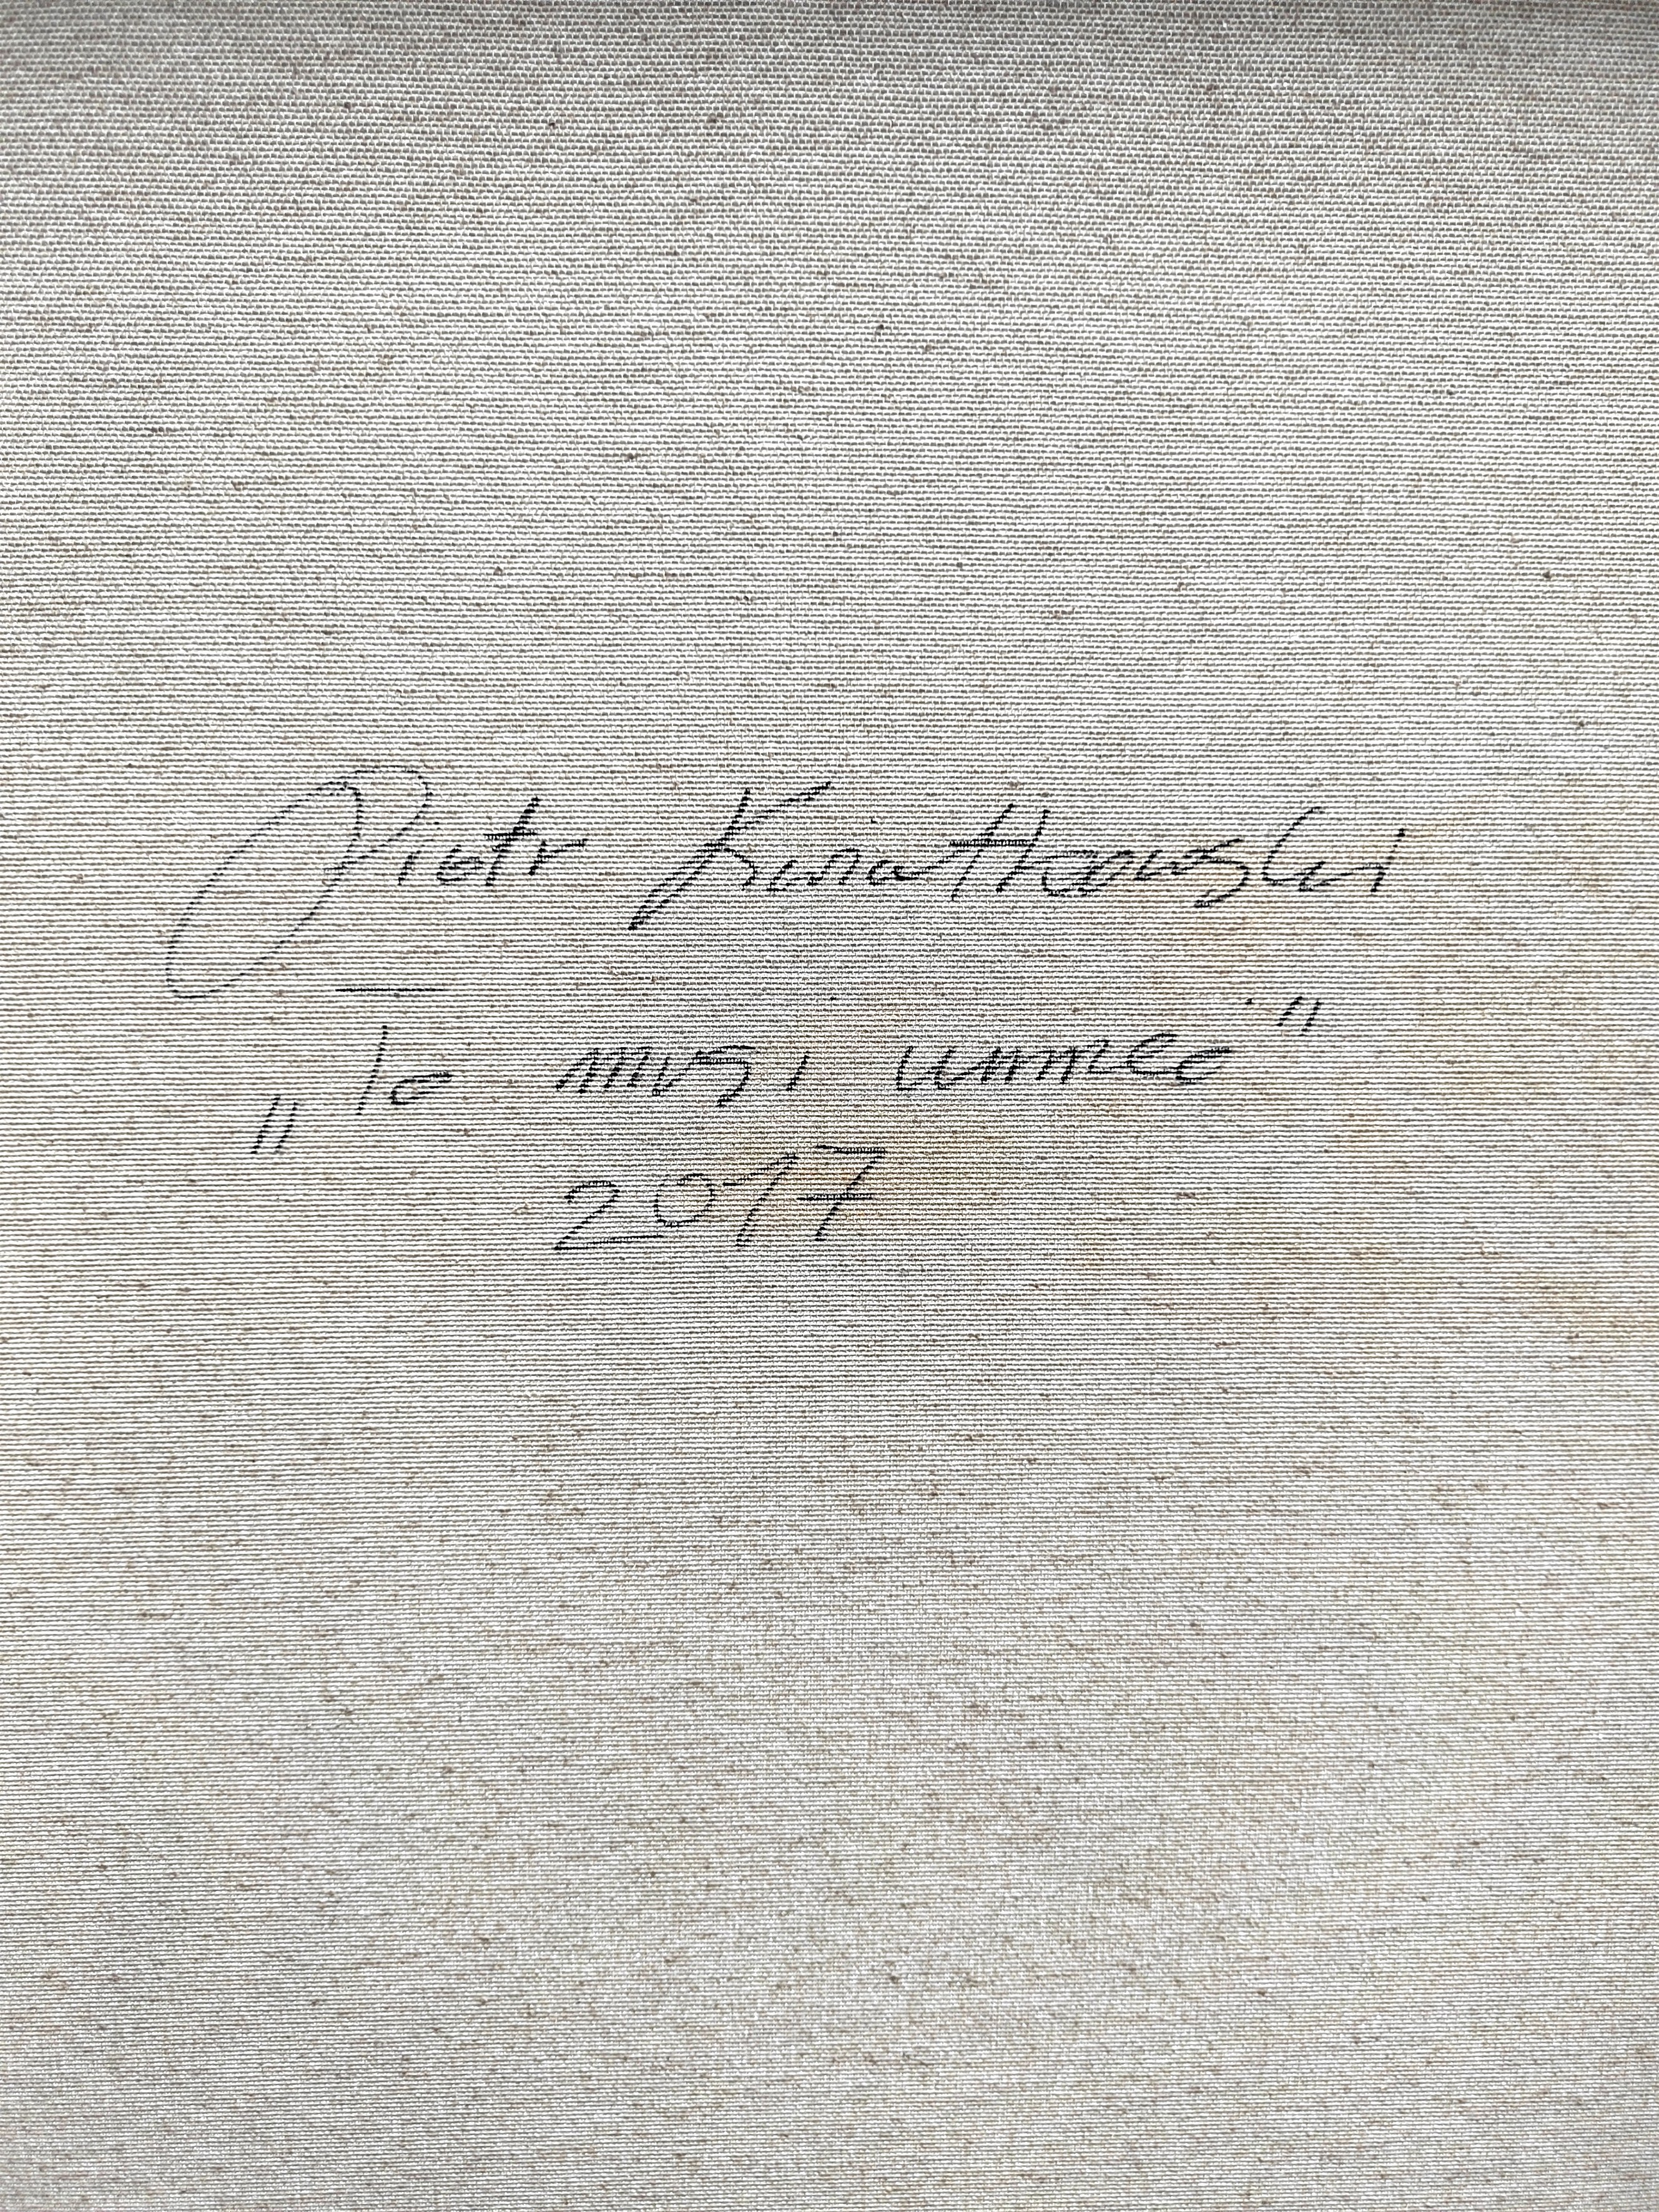 Piotr Kwiatkowski
„To musi umrzeć"
2017